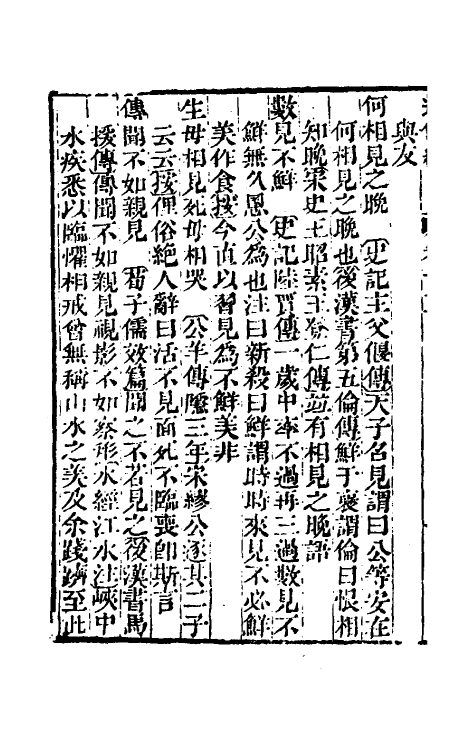 與友
何相見之晚 史記主父偃傳天子召見謂曰公等安在
何相見之晚也後漢書第五倫傳鮮于襃謂倫曰恨相
知晚宋史王昭素王登仁傳並有相見之晚語
數見不鮮 史記陸賈傳一歲中率不過再三過數見不
鮮無久恩公為也注曰新殺曰鮮謂時時來見不必鮮
美作食按今直以習見為不鮮美非
生毋相見死毋相哭 公羊傳隱三年宋繆公逐其二子
云云按俚俗絶人辭曰活不見面死不臨喪卽斯言
傳聞不如親見 荀子儒效篇聞之不若見之後漢書馬
援傳傳聞不如親見視影不如察形水經江水注峽中
水疾悉以臨懼相戒曾無稱山水之美及余踐躋至此